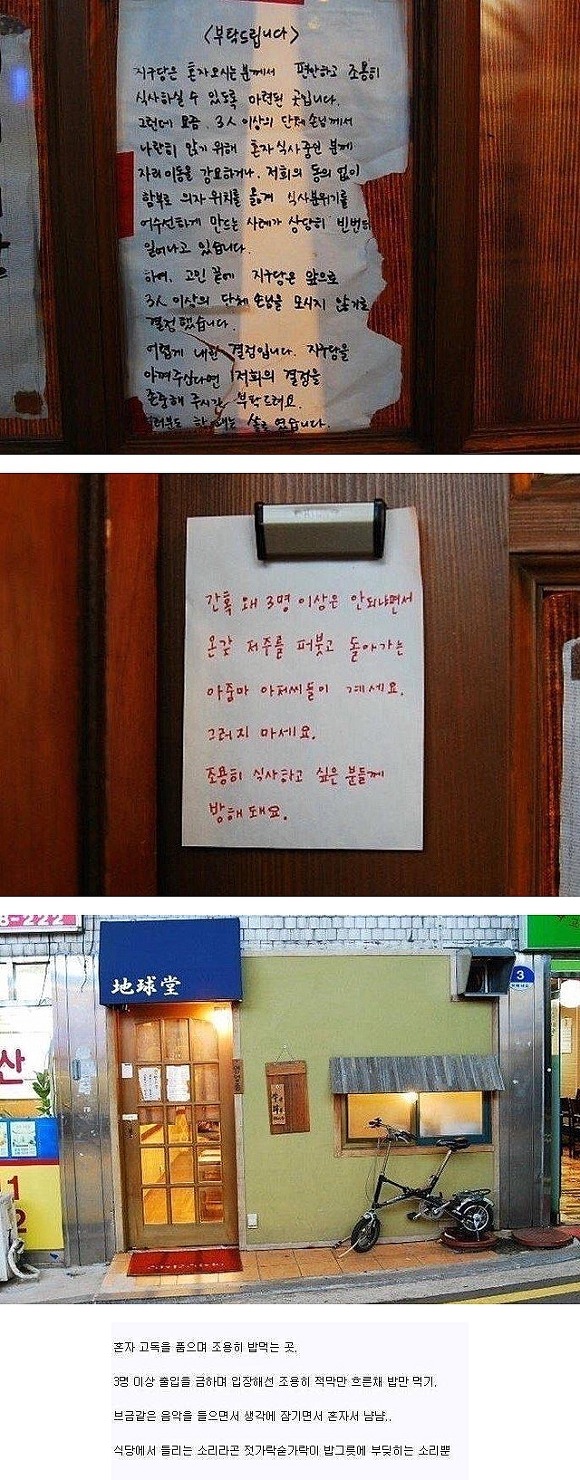 <부탁드립니다>
지구당은 혼자 오시는 분께서 편안하고 조용히
식사하실 수 있도록 마련된 곳입니다.
그런데 요즘, 3人 이상의 단체 손님께서
나란히 앉기 위해 혼자 식사중인 분께
자리이동을 강요하거나, 저희의 동의 없이
함부로 의자 위치를 옮겨 식사분위기를
어수선하게 만드는 사례가 상당히 빈번히
일어나고 있습니다.
하여, 고민 끝에 지구당은 앞으로
3人 이상의 단체 손님을 모시지 않기로
결정했습니다.
어렵게 내린 결정입니다. 지구당을
아껴주신다면 저희의 결정을
존중해 주시길 부탁드려요.
간혹 왜 3명 이상은 안되냐면서
온갖 저주를 퍼붓고 돌아가는
아줌마 아저씨들이 계세요.
그러지 마세요.
조용히 식사하고 싶은 분들께
방해돼요.
8-222
地球堂
3
산
1
2
혼자 고독을 품으며 조용히 밥먹는 곳.
3명 이상 출입을 금하며 입장해선 조용히 적막만 흐른채 밥만 먹기.
브금같은 음악을 들으면서 생각에 잠기면서 혼자서 냠냠..
식당에서 들리는 소리라곤 젓가락숟가락이 밥그릇에 부딪히는 소리뿐